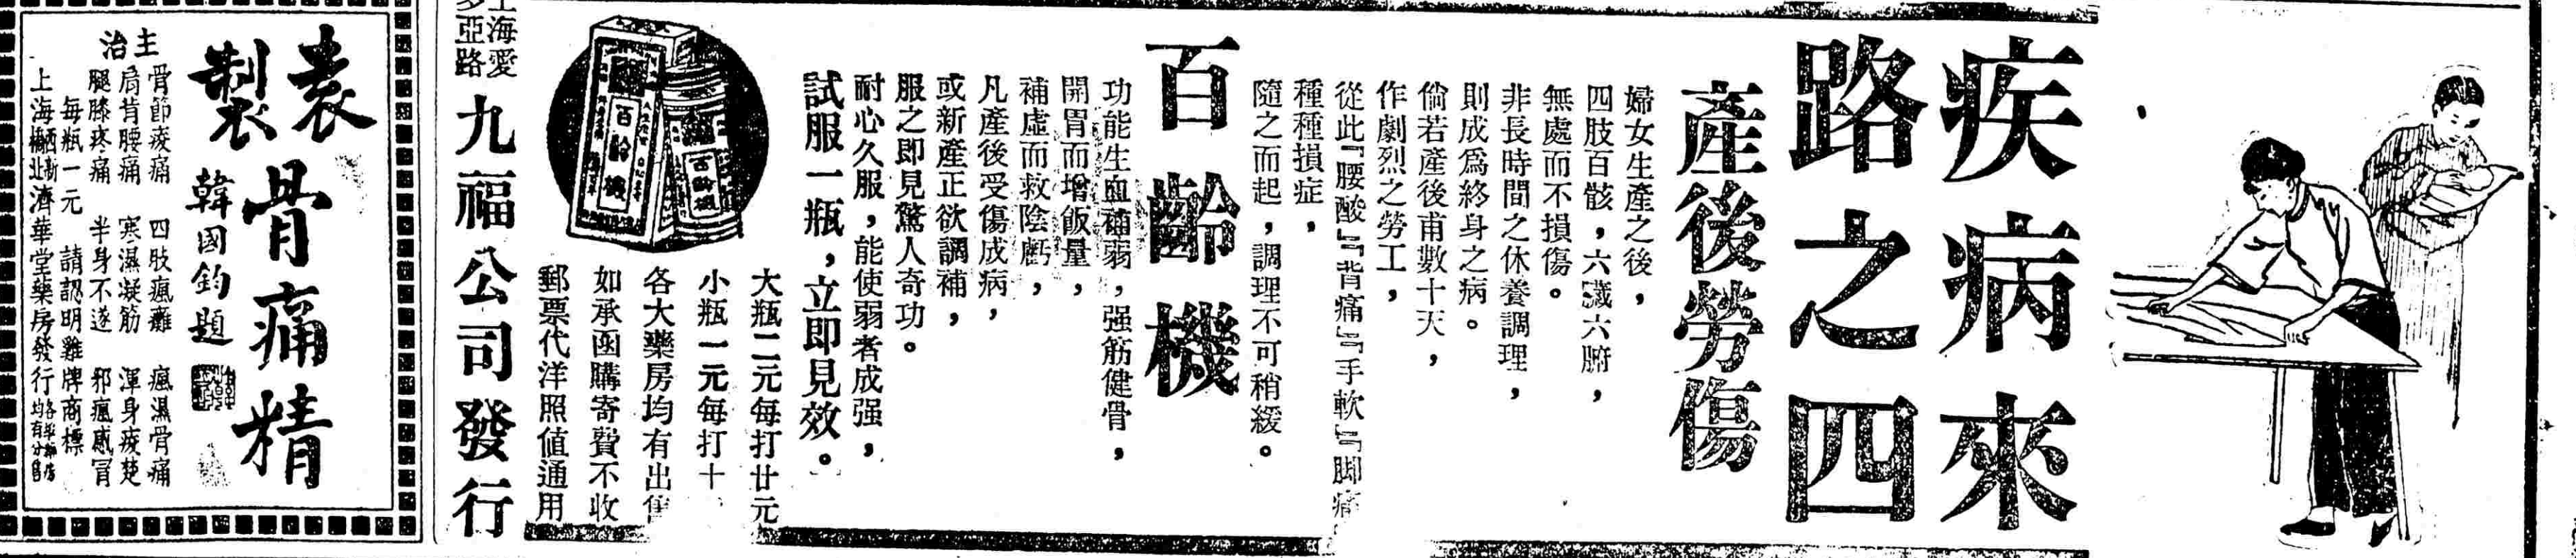 疾病來
路之四
產後勞傷
婦女生產之後，
四肢百骸，六臟六腑，
無處而不損傷。
非長時間之休養調理，
則成為終身之病。
倘若產後甫數十天，
作劇烈之勞工，
從此『腰酸』『背痛』『手軟』『脚痛
種種損症，
隨之而起，調理不可稍緩。
百齡機
功能生血補弱，强筋健骨，
開胃而增飯量，
補虛而救陰虧，
凡產後受傷成病，
或新產正欲調補，
服之即見驚人奇功。
耐心久服，能使弱者成强，
試服一瓶，立即見效。
百齡機
百齡機
大瓶二元每打廿元
小瓶一元每打十
各大藥房均有出售
如承函購寄費不收
郵票代洋照値通用
上海愛
多亞路
九福公司發行
袁
製
骨痛精
韓國鈞題
主治
骨節痠痛 四肢瘋癱 瘋濕骨痛
肩背腰痛 寒濕凝筋 渾身疲楚
腿膝疼痛 半身不遂 邪瘋感冒
每瓶一元 請認明雞牌商標
上海 濟華堂藥房發行